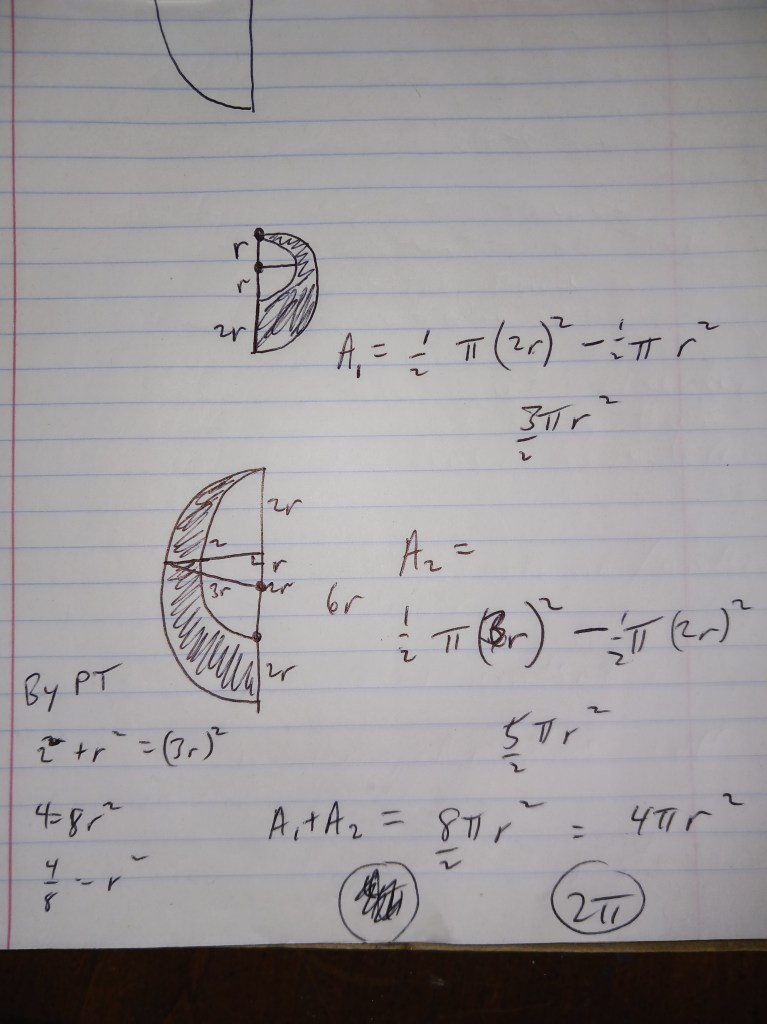 r
r
2r
A₁ = 1/2 π(2r)² - 1/2 π r²
3/2 πr²
2r
2
r
3r
2r
6r
2r
A₂ =
1/2 π(3r)² - 1/2 π(2r)²
By PT
2² + r² = (3r)²
5/2 πr²
4=8r²
A₁+A₂ = 8/2 πr² = 4πr²
4/8 = r²
2π